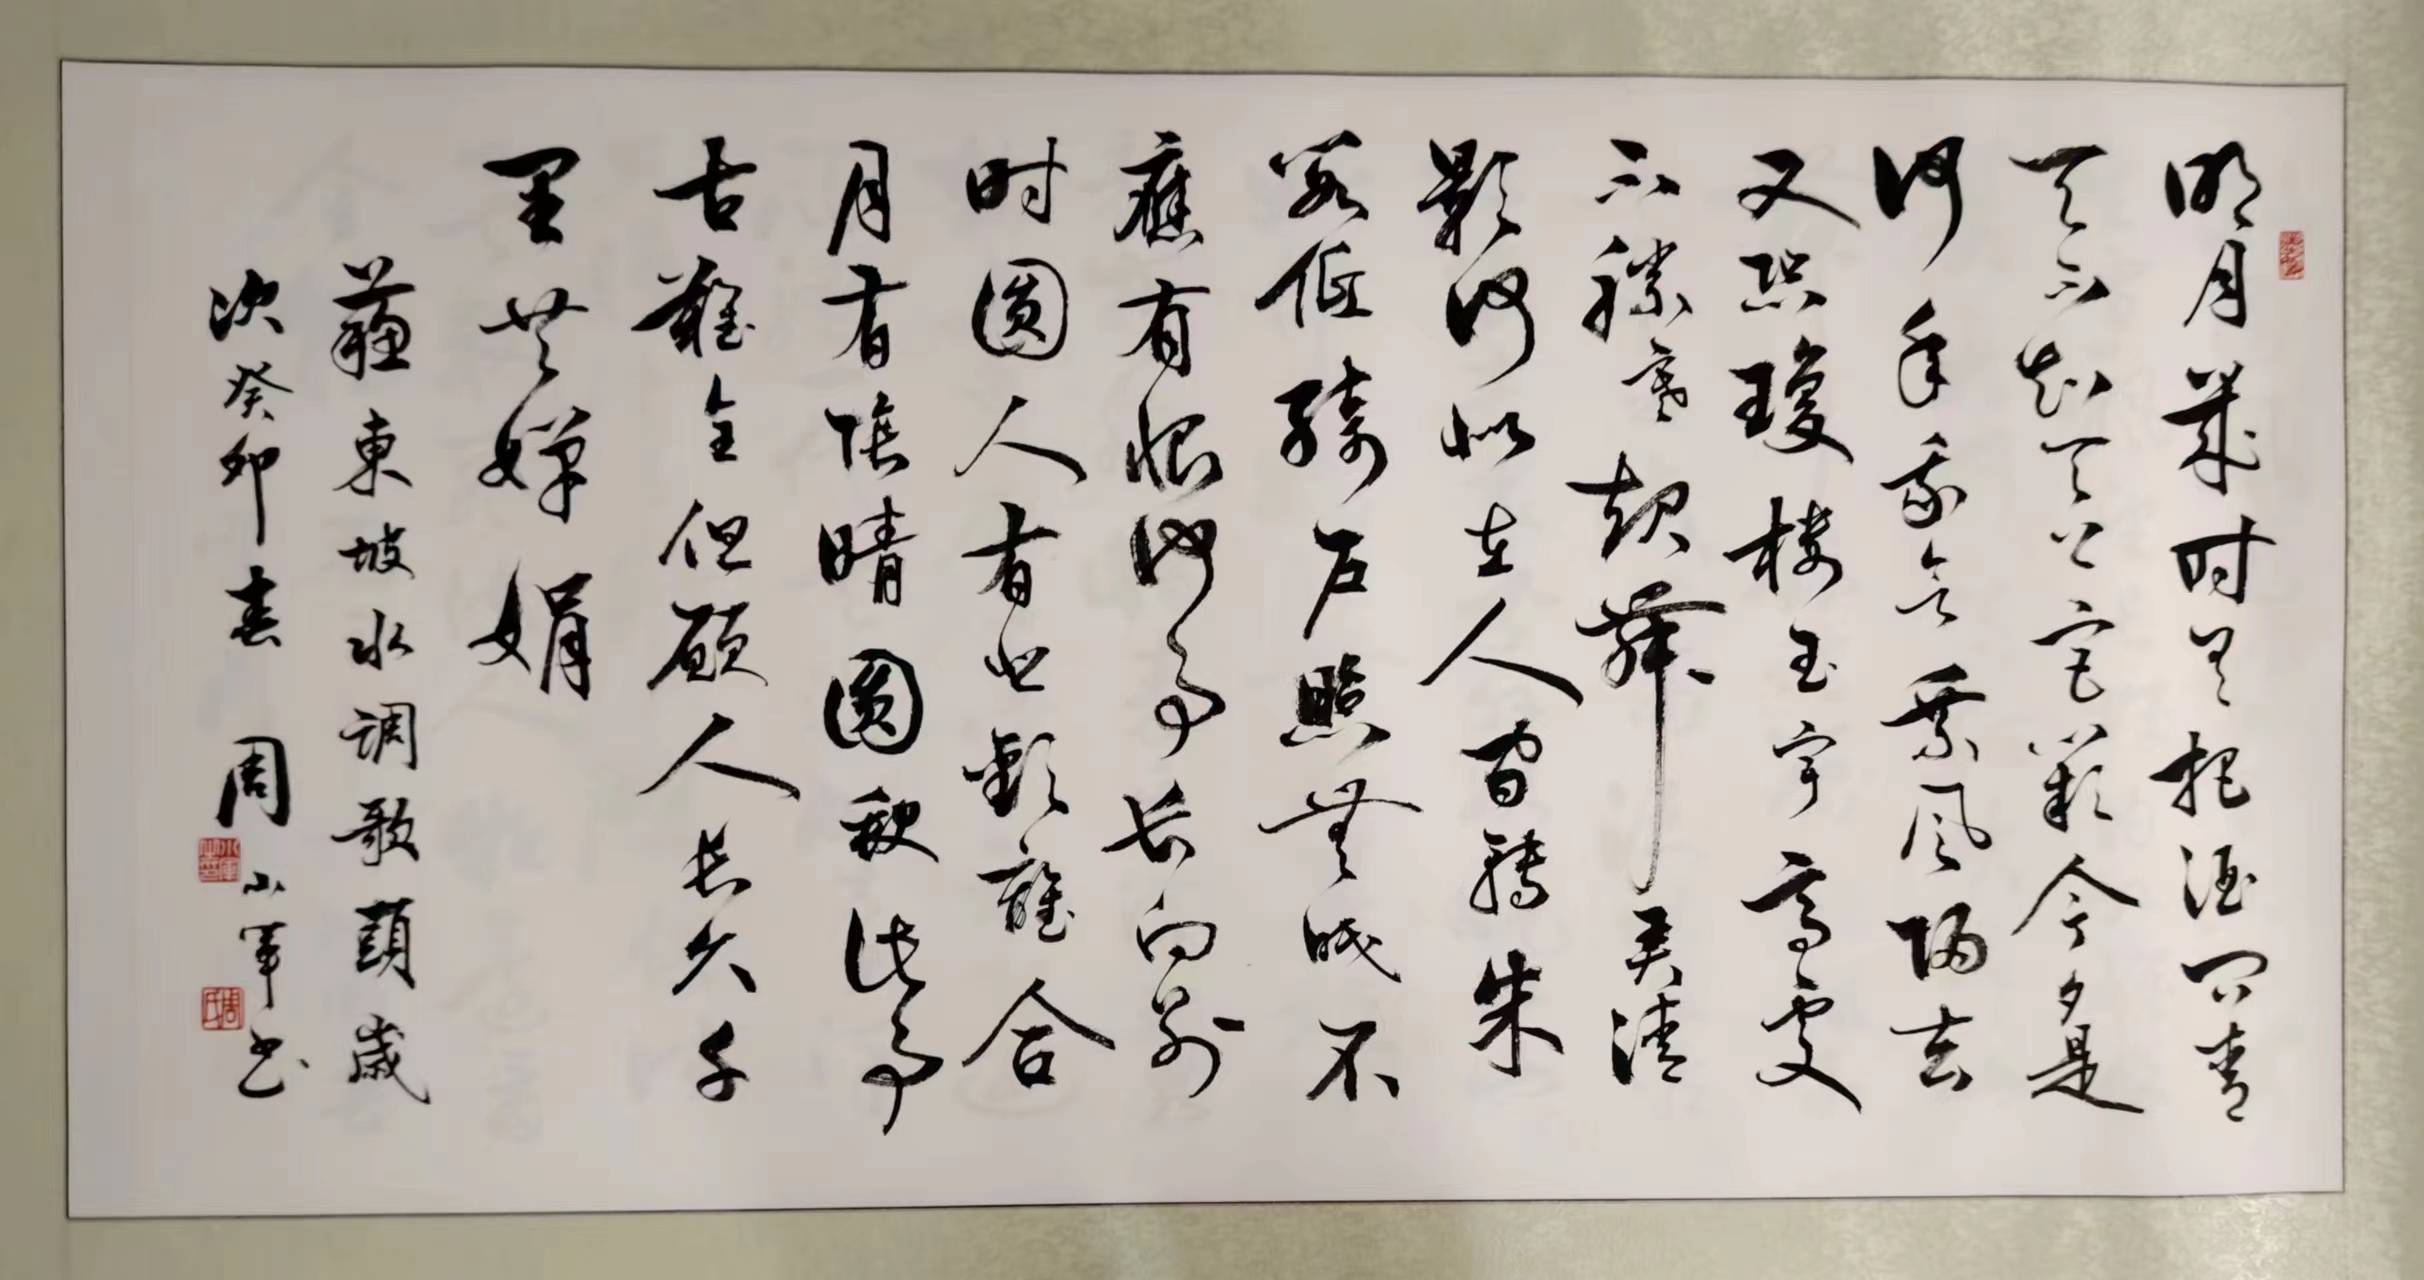 明月幾时有把酒问青
天不知天上宫闕今夕是
何年我欲乘风歸去
又恐瓊楼玉宇高處
不勝寒起舞弄清
影何似在人间轉朱
阁低绮户照無眠不
應有恨何事长向别
时圆人有悲歡離合
月有陰晴圆缺此事
古難全但願人长久千
里共嬋娟
蘇東坡水调歌頭歲
次癸卯春 周小军书